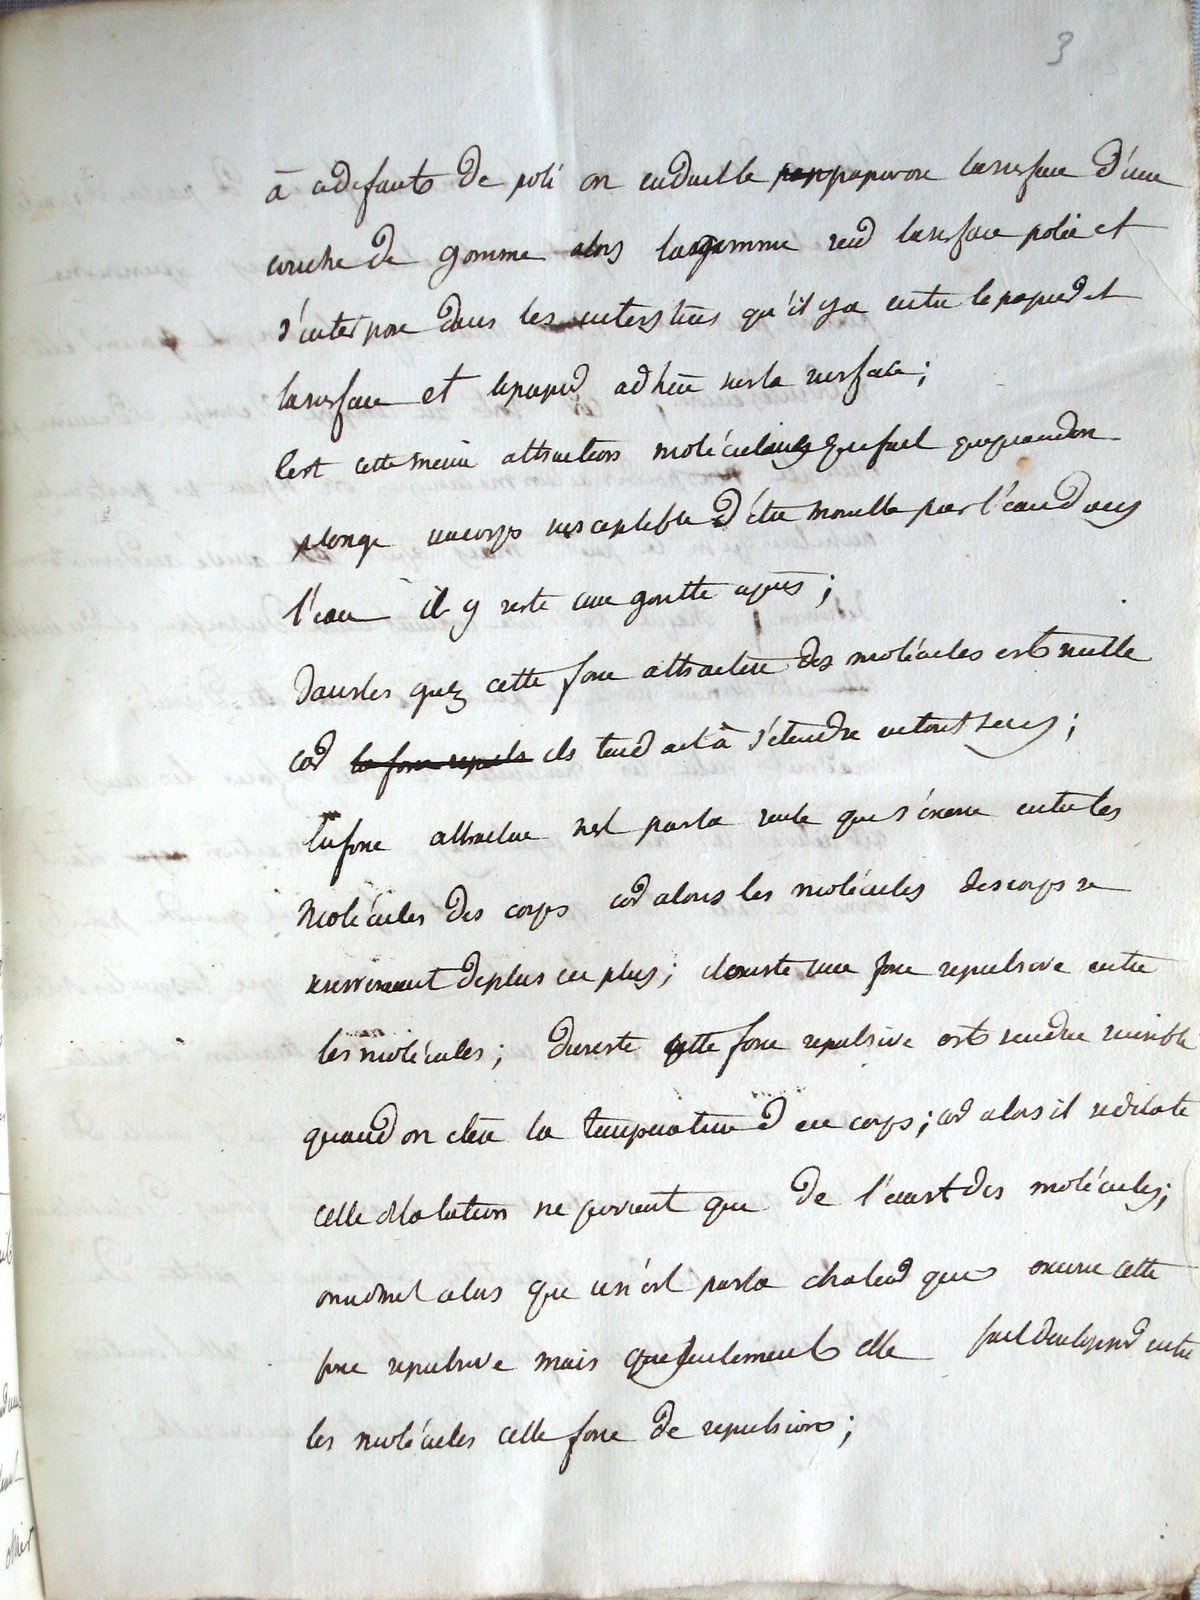 3
à ce defaut de poli on enduit le pap papier ou la surface d'une
couche de gomme alors la gomme rend la surface polie et
s'interpose dans les interstices qu'il y a entre le papier et
la surface et le papier adhère sur la surface;
C'est cette même attraction moléculaire qui fait que quand on
plonge un corps susceptible d'être mouillé par l'eau dans
l'eau il y reste une goutte après;
Dans les gaz cette force attractive des molécules est nulle
car la force repuls ils tendent à s'etendre en tout sens;
la force attractive n'est pas la seule qui s'exerce entre les
molécules des corps car alors les molécules des corps se
serreraient de plus en plus; il existe une force repulsive entre
les molécules; du reste cette force repulsive est rendue sensible
quand on élève la temperature d'un corps; car alors il se dilate
cette dilatation ne provient que de l'écart des molécules;
on admet alors que ce n'est pas la chaleur qui exerce cette
force repulsive mais que seulement elle fait developper entre
les molécules cette force de repulsion;